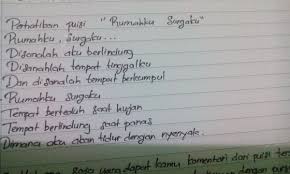 Perhatikan puisi "Rumahku Surgaku"
Rumahku, surgaku...
Disanalah aku berlindung
Disanalah tempat tinggalku
Dan disanalah tempat berkumpul
Rumahku surgaku
Tempat berteduh saat hujan
Tempat berlindung saat panas
Dimana aku akan tidur dengan nyenyak.
yang dapat kamu komentari dari puisi
dengan puisi